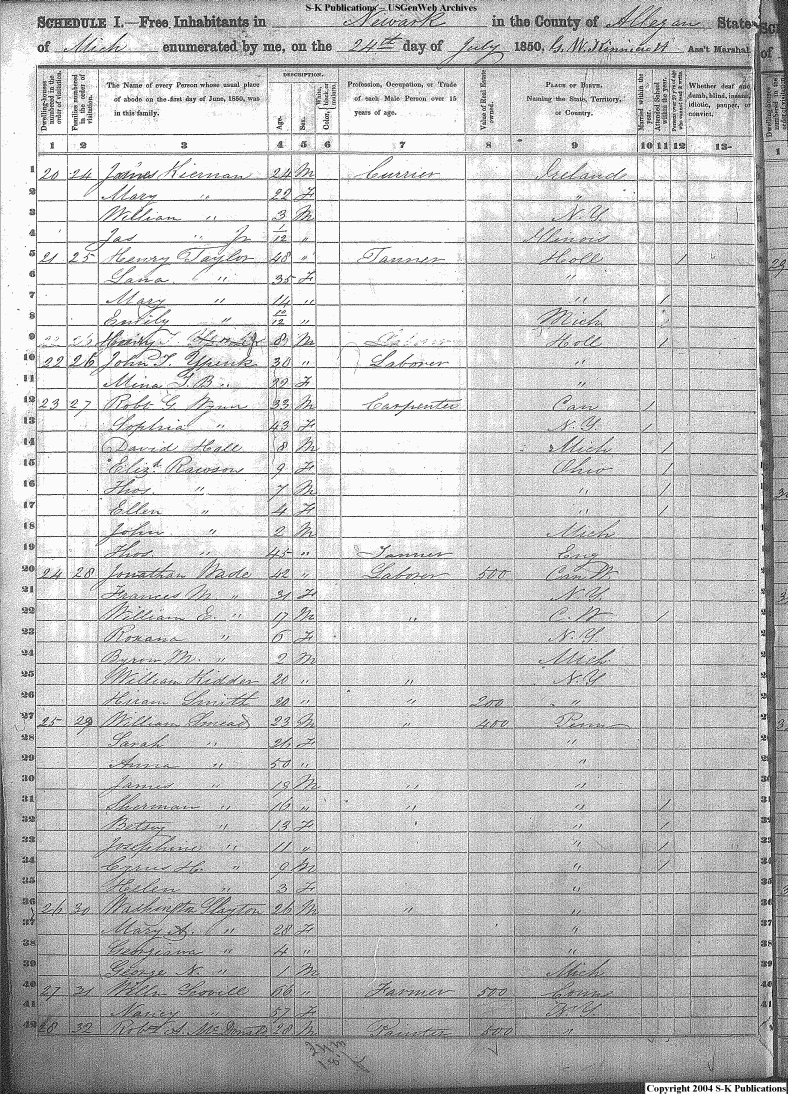 S-K Publications - USGenWeb Archives
SCHEDULE I.—Free Inhabitants in Newark in the County of Allegan State
of Mich enumerated by me, on the 24th day of July 1850. Ass't Marshal
Dwelling-houses numbered in the order of visitation. Families numbered in the order of visitation. The Name of every Person whose usual place of abode on the first day of June, 1850, was in this family. DESCRIPTION. Age. Sex. Color, White, black, or mulatto. Profession, Occupation, or Trade of each Male Person over 15 years of age. Value of Real Estate owned. PLACE OF BIRTH. Naming the State, Territory, or Country. Married within the year. Attended School within the year. Whether deaf and dumb, blind, insane, idiotic, pauper, or convict.
1 2 3 4 5 6 7 8 9 10 11 12 13
1 20 24 James Kiernan 24 M Currier Ireland
2 Mary " 22 F "
3 William " 3 M N.Y
4 Jas " Jr 1/12 " Illinois
5 21 25 Henry Taylor 48 " Tanner Holl 1
6 Lana " 35 F "
7 Mary " 14 " " 1
8 Emily " 10/12 " Mich
9 8 M Holl
10 22 26 John T. Ypenk 30 " Laborer "
11 Mina T. B " 22 F "
12 23 27 Robt G. Wynn 33 M Carpenter Can 1
13 Sophia " 43 F N.Y 1
14 David Hall 8 M Mich 1
15 Eliz. Rawson 9 F Ohio 1
16 Thos. " 7 M " 1
17 Ellen " 4 F "
18 John " 2 M Mich
19 Thos. " 45 " Tanner Eng
20 24 28 Jonathan Wade 42 " Laborer 500 Can W.
21 Frances M " 31 F N.Y
22 William E. " 17 M " C. W 1
23 Roxana " 6 F N.Y
24 Byron M. " 2 M Mich
25 William Kidder 20 " " N.Y
26 Hiram Smith 20 " " 200 "
27 25 29 William Smead 23 M " 400 Penn
28 Sarah " 26 F "
29 Anna " 50 " "
30 James " 18 M " "
31 Sherman " 16 " " " 1
32 Betsy " 13 F " 1
33 Josephine " 11 " " 1
34 Cyrus H. " 9 M " 1
35 Helen " 3 F "
36 26 30 Washington Slayton 26 M " "
37 Mary A. " 28 F "
38 Georgiana " 4 " "
39 George N. " 1 M Mich
40 27 31 Scovill 66 " Farmer 500 Conn
41 Nancy " 57 F N.Y
42 28 32 Robt A. McDonald 28 M Painter 500 "
Copyright 2004 S-K Publications